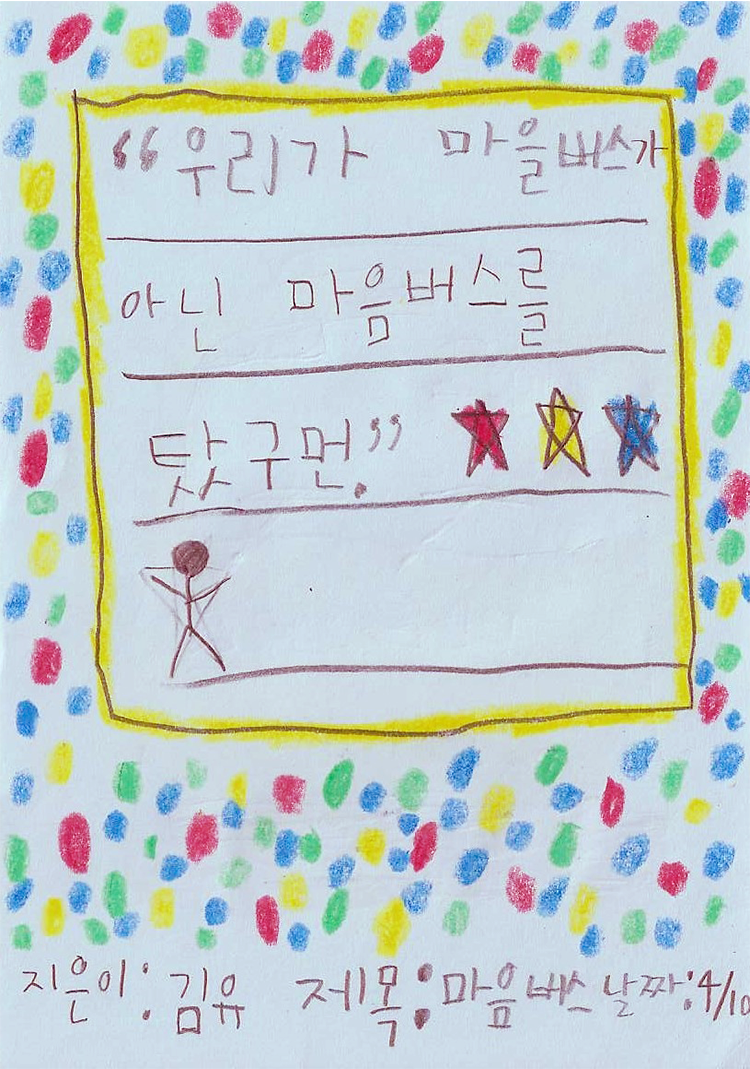 “우리가 마을버스가
아닌 마음버스를
탓구먼.”
지은이: 김유 제목: 마음버스 날짜: 4/10